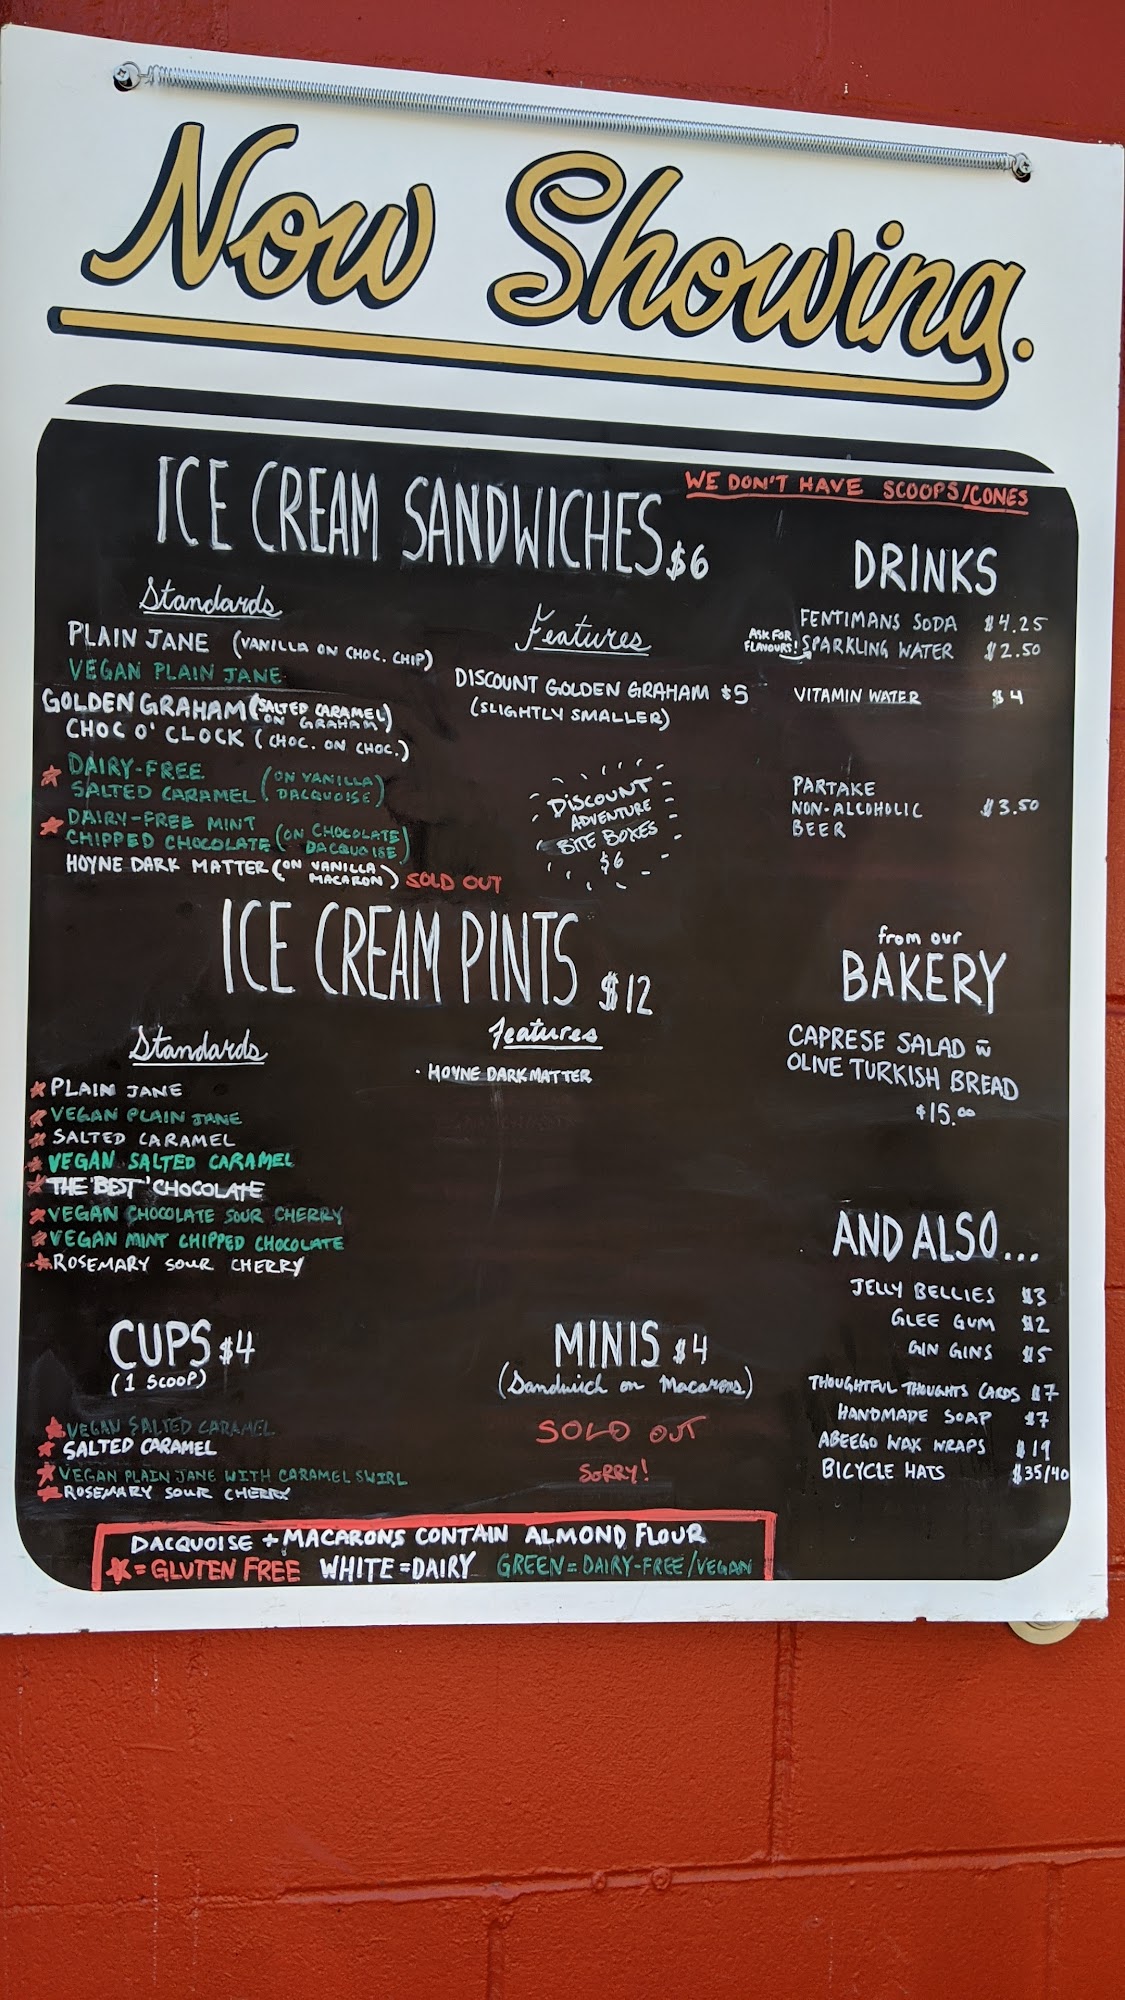 Now Showing.
WE DON'T HAVE SCOOPS/CONES
ICE CREAM SANDWICHES $6
Standards
PLAIN JANE (VANILLA ON CHOC. CHIP)
VEGAN PLAIN JANE
GOLDEN GRAHAM (SALTED CARAMEL ON GRAHAM)
CHOC O' CLOCK (CHOC. ON CHOC.)
DAIRY-FREE
SALTED CARAMEL (ON VANILLA DACQUOISE)
DAIRY-FREE MINT
CHIPPED CHOCOLATE (ON CHOCOLATE DACQUOISE)
HOYNE DARK MATTER (ON VANILLA MACARON) SOLD OUT
Features
DISCOUNT GOLDEN GRAHAM $5
(SLIGHTLY SMALLER)
DISCOUNT
ADVENTURE
BITE BOXES
$6
DRINKS
FENTIMANS SODA $4.25
ASK FOR FLAVOURS! SPARKLING WATER $2.50
VITAMIN WATER $4
PARTAKE
NON-ALCOHOLIC $3.50
BEER
ICE CREAM PINTS $12
Standards
PLAIN JANE
VEGAN PLAIN JANE
SALTED CARAMEL
VEGAN SALTED CARAMEL
THE 'BEST' CHOCOLATE
VEGAN CHOCOLATE SOUR CHERRY
VEGAN MINT CHIPPED CHOCOLATE
ROSEMARY SOUR CHERRY
features
· HOYNE DARK MATTER
from our
BAKERY
CAPRESE SALAD w̄
OLIVE TURKISH BREAD
$15.00
AND ALSO...
JELLY BELLIES $3
GLEE GUM $2
GIN GINS $5
THOUGHTFUL THOUGHTS CARDS $7
HANDMADE SOAP $7
ABEEGO WAX WRAPS $19
BICYCLE HATS $35/40
CUPS $4
(1 SCOOP)
VEGAN SALTED CARAMEL
SALTED CARAMEL
VEGAN PLAIN JANE WITH CARAMEL SWIRL
ROSEMARY SOUR CHERRY
MINIS $4
(Sandwich on Macarons)
SOLD OUT
SORRY!
DACQUOISE + MACARONS CONTAIN ALMOND FLOUR
★ = GLUTEN FREE WHITE = DAIRY GREEN = DAIRY-FREE/VEGAN